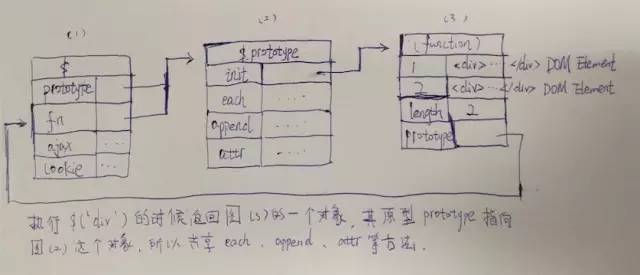 (1)
$
prototype
fn
ajax ...
cookie ...
(2)
$.prototype
init
each ....
append ....
attr ....
(3)
(function)
1 <div>... </div> DOM Element
2 <div>... </div> DOM Element
length 2
prototype
执行 $('div') 的时候返回图(3)的一个对象，其原型 prototype 指向
图(2)这个对象，所以共享 each、append、attr 等方法.